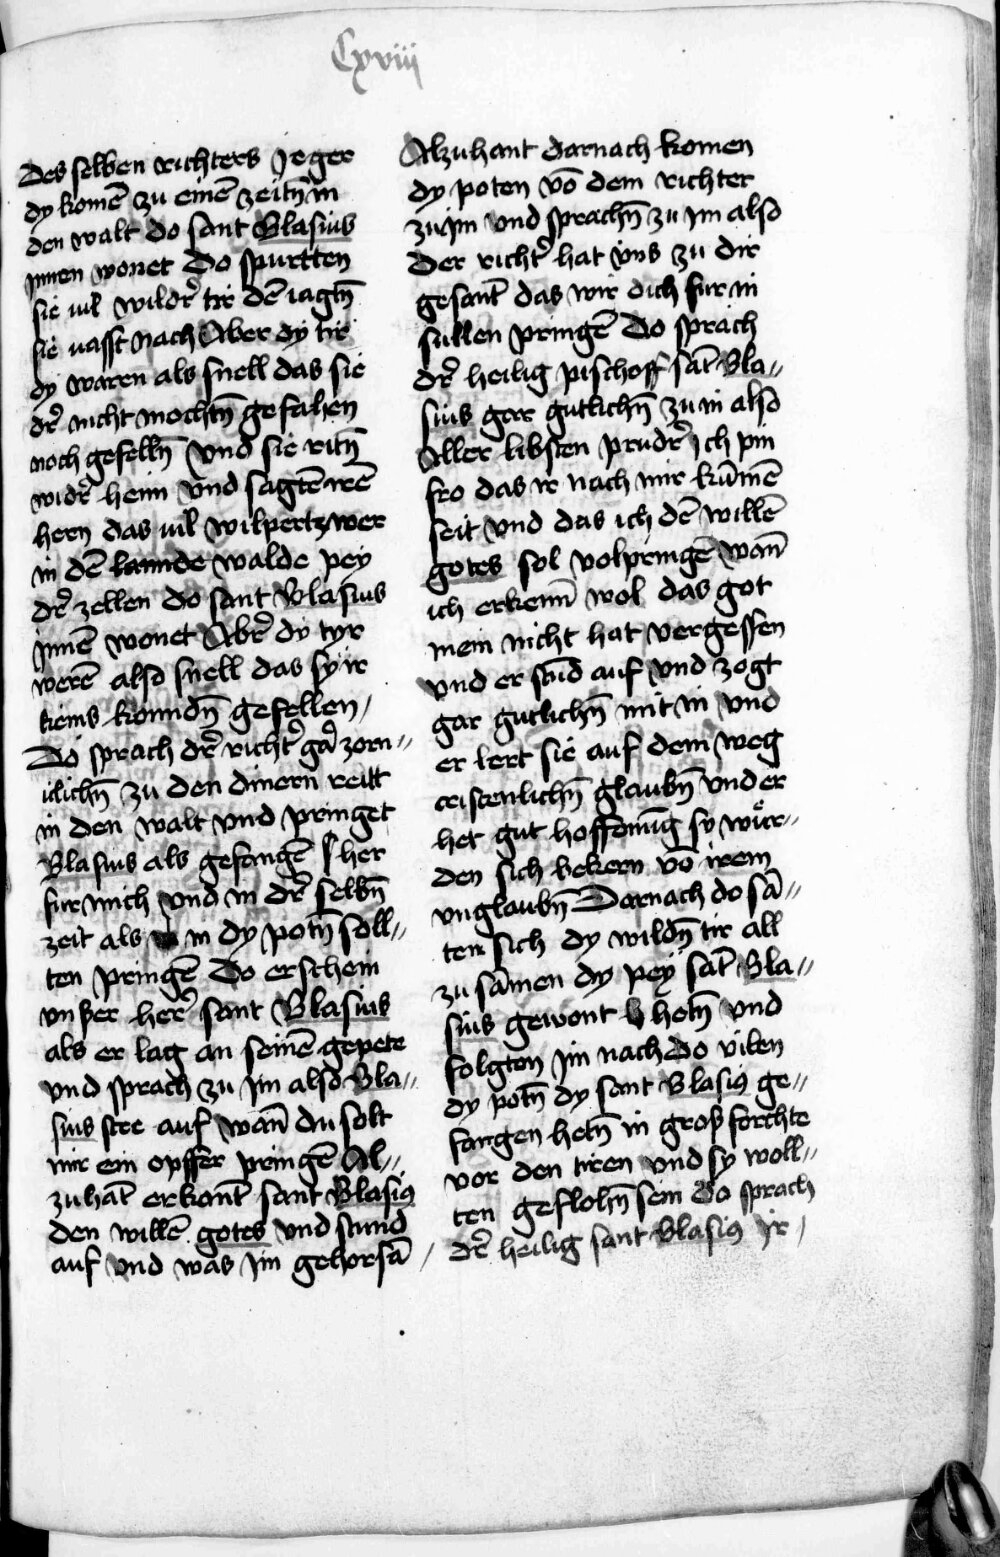 Cxviii
des selben richters Jeger
dy komē zu einē zeitn̄ in
den walt do sant Blasius
jnnen wonet Do spurtten
sie uil wildr̄ tir dē iagtn̄
sie vasst nach Aber dy tir
dy waren als snell das sie
dr̄ nicht mochtn̄ gefahen
noch gefelln̄ Vnd sie ritn̄
widr̄ heim vnd sagtē irē
hern das uil wilpertz wer
in dē lannde walde pey
dr̄ zellen do sant Blasius
jnnē wonet Abr̄ dy tyr
werē also snell das sy ir
keins konndn̄ gefellen /
Do sprach dr̄ richtr̄ gar zorn //
iclichn̄ zu den dinern reitt
in den walt vnd pringet
Blasius als gefangē her
fur mich vnd in dr̄ selbn̄
zeit als in dy potn̄ soll //
ten pringē Do erschein
vnser herr̄ sant Blasius
als er lag an seinē gepete
vnd sprach zu jm also Bla //
sius stee auf wan̄ du solt
mir ein opffer pringē Al //
zuhāt erkant̄ sant Blasiꝰ
den willē gotes vnd stund
auf vnd was jm gehorsā /
Alzuhant darnach komen
dy poten vō dem richter
zu jm vnd sprachn̄ zu jm also
Der richtr̄ hat vns zu dir
gesant̄ das wir dich fur in
sullen pringē Do sprach
dr̄ heilig pischoff sāt Bla //
sius gar gutlichn̄ zu in also
Aller libsten prudr̄ ich pin
fro das ir nach mir kūmē
seit vnd das ich dē willē
gotes sol volpringē wan̄
ich erkenn̄ wol das got
mein nicht hat vergessen
vnd er stūd auf vnd zogt
gar gutlichn̄ mit in vnd
er lert sie auf dem weg
cristenlichn̄ glaubn̄ vnd er
het gut hoffnūg sy wůr //
den sich bekern vō irem
vnglaubn̄ Darnach do sā //
ten sich dy wildn̄ tir all
zu sāmen dy pey sāt Bla //
sius gewont hetn̄ vnd
folgten jm nach Do vilen
dy potn̄ dy sant Blasiꝰ ge //
fangen hetn̄ in groß forchte
vor den tiren vnd sy woll //
ten geflohn̄ sein Do sprach
dr̄ heilig sant Blasiꝰ Ir /